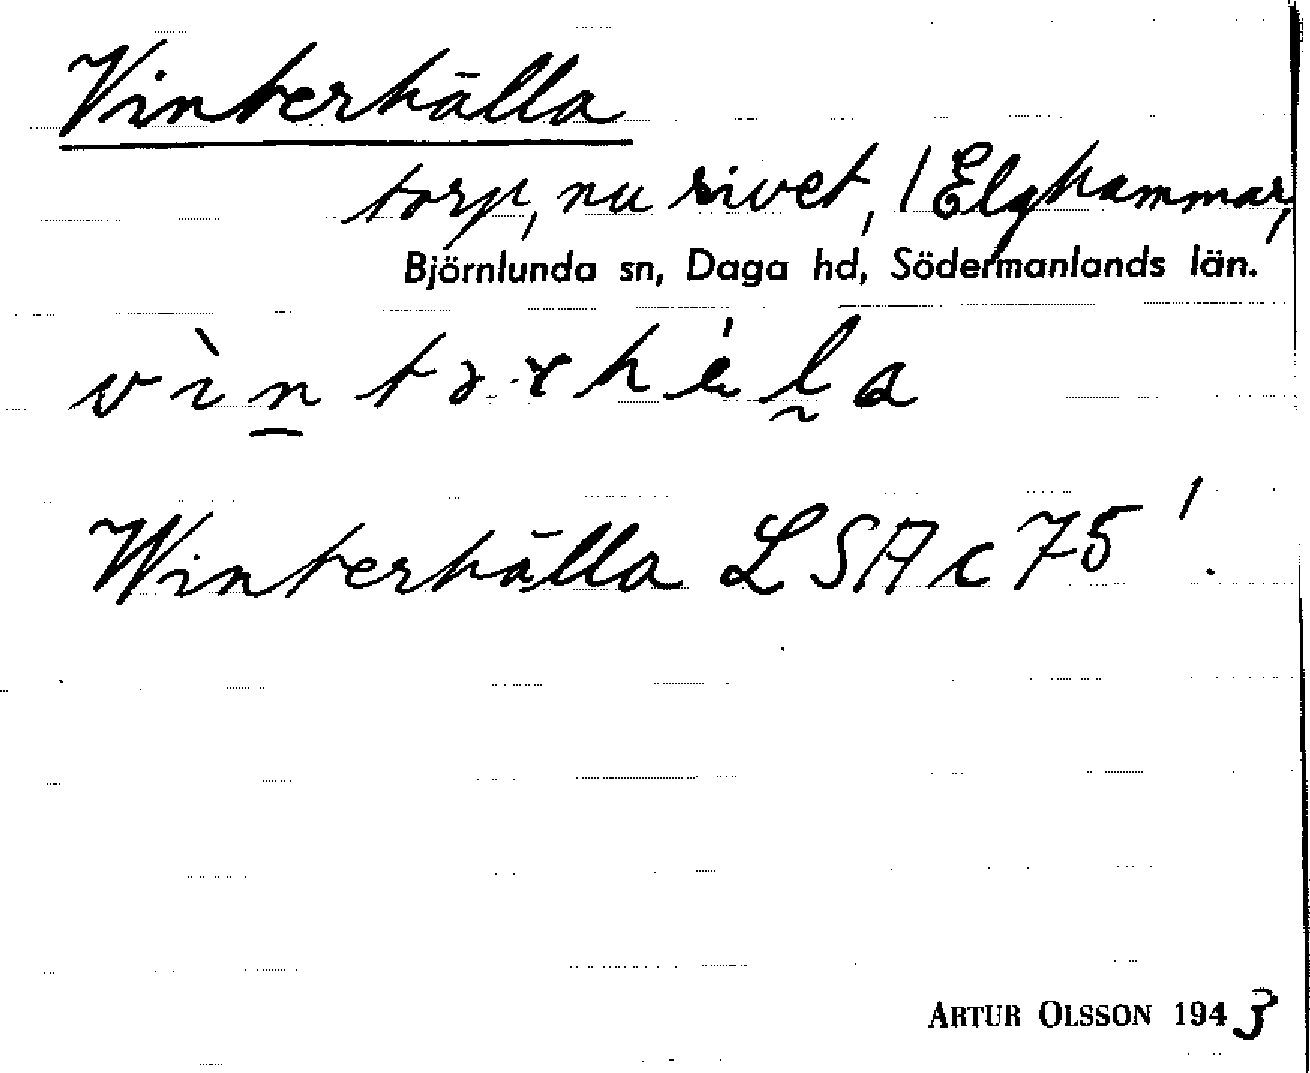 Vinterhälla
torp, nu rivet, / Elghammar,
Björnlunda sn, Daga hd, Södermanlands län.
Winterhälla LSA c 75 !.
ARTUR OLSSON 1943